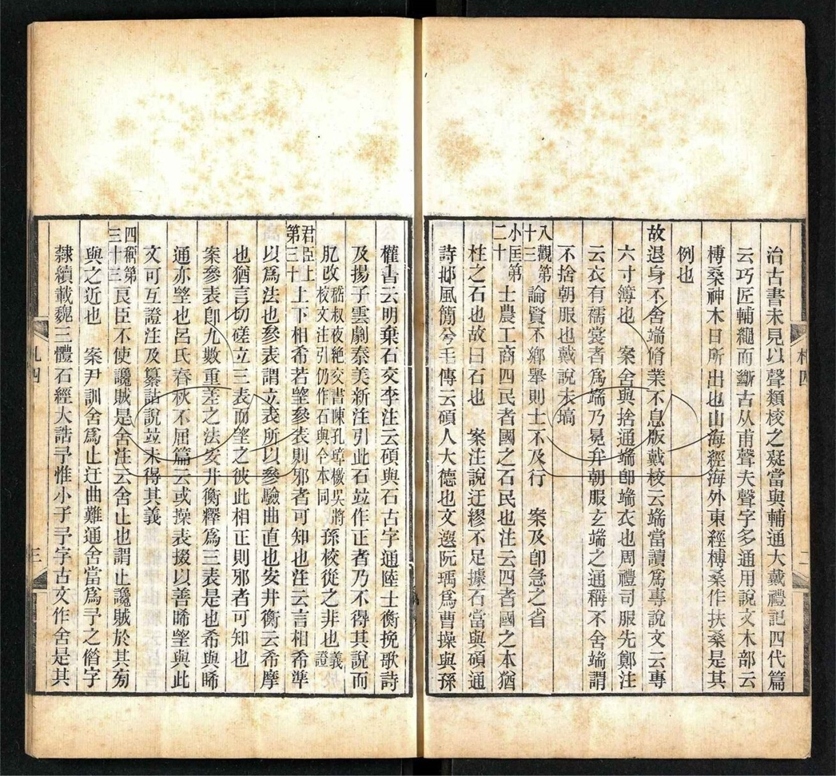 治古書未見以聲類校之疑當與輔通大戴禮記四代篇
云巧匠輔繩而斲古从甫聲夫聲字多通用說文木部云
榑桑神木日所出也山海經海外東經榑桑作扶桑是其
例也
故退身不舍端脩業不息版戴校云端當讀爲專說文云專
六寸簿也　案舍與捨通端卽端衣也周禮司服先鄭注
云衣有襦裳者爲端乃冕弁朝服玄端之通稱不舍端謂
不捨朝服也戴說未塙
八觀第十三　論賢不鄉舉則士不及行　案及卽急之省
小匡第二十　士農工商四民者國之石民也注云四者國之本猶
柱之石也故曰石也　案注說迂繆不足據石當與碩通
詩邶風簡兮毛傳云碩人大德也文選阮瑀爲曹操與孫
札四
二
權書云明棄石交李注云碩與石古字通陸士衡挽歌詩
及揚子雲劇秦美新注引此石竝作正者乃不得其說而
肊改嵇叔夜絶交書陳孔璋檄吳將校文注引仍作石與今本同孫校從之非也義證
君臣上第三十　上下相希若朢參表則邪者可知也注云言相希準
以爲法也參表謂立表所以參驗曲直也安井衡云希摩
也猶言切磋立三表而朢之彼此相正則邪者可知也
案參表卽九數重差之法安井衡釋爲三表是也希與睎
通亦朢也呂氏春秋不屈篇云或操表掇以善睎朢與此
文可互證注及纂詁說竝未得其義
四稱第三十三　良臣不使讒賊是舍注云舍止也謂止讒賊於其旁
與之近也　案尹訓舍爲止迂曲難通舍當爲予之借字
隸續載魏三體石經大誥予惟小子予字古文作舍是其
札四
三